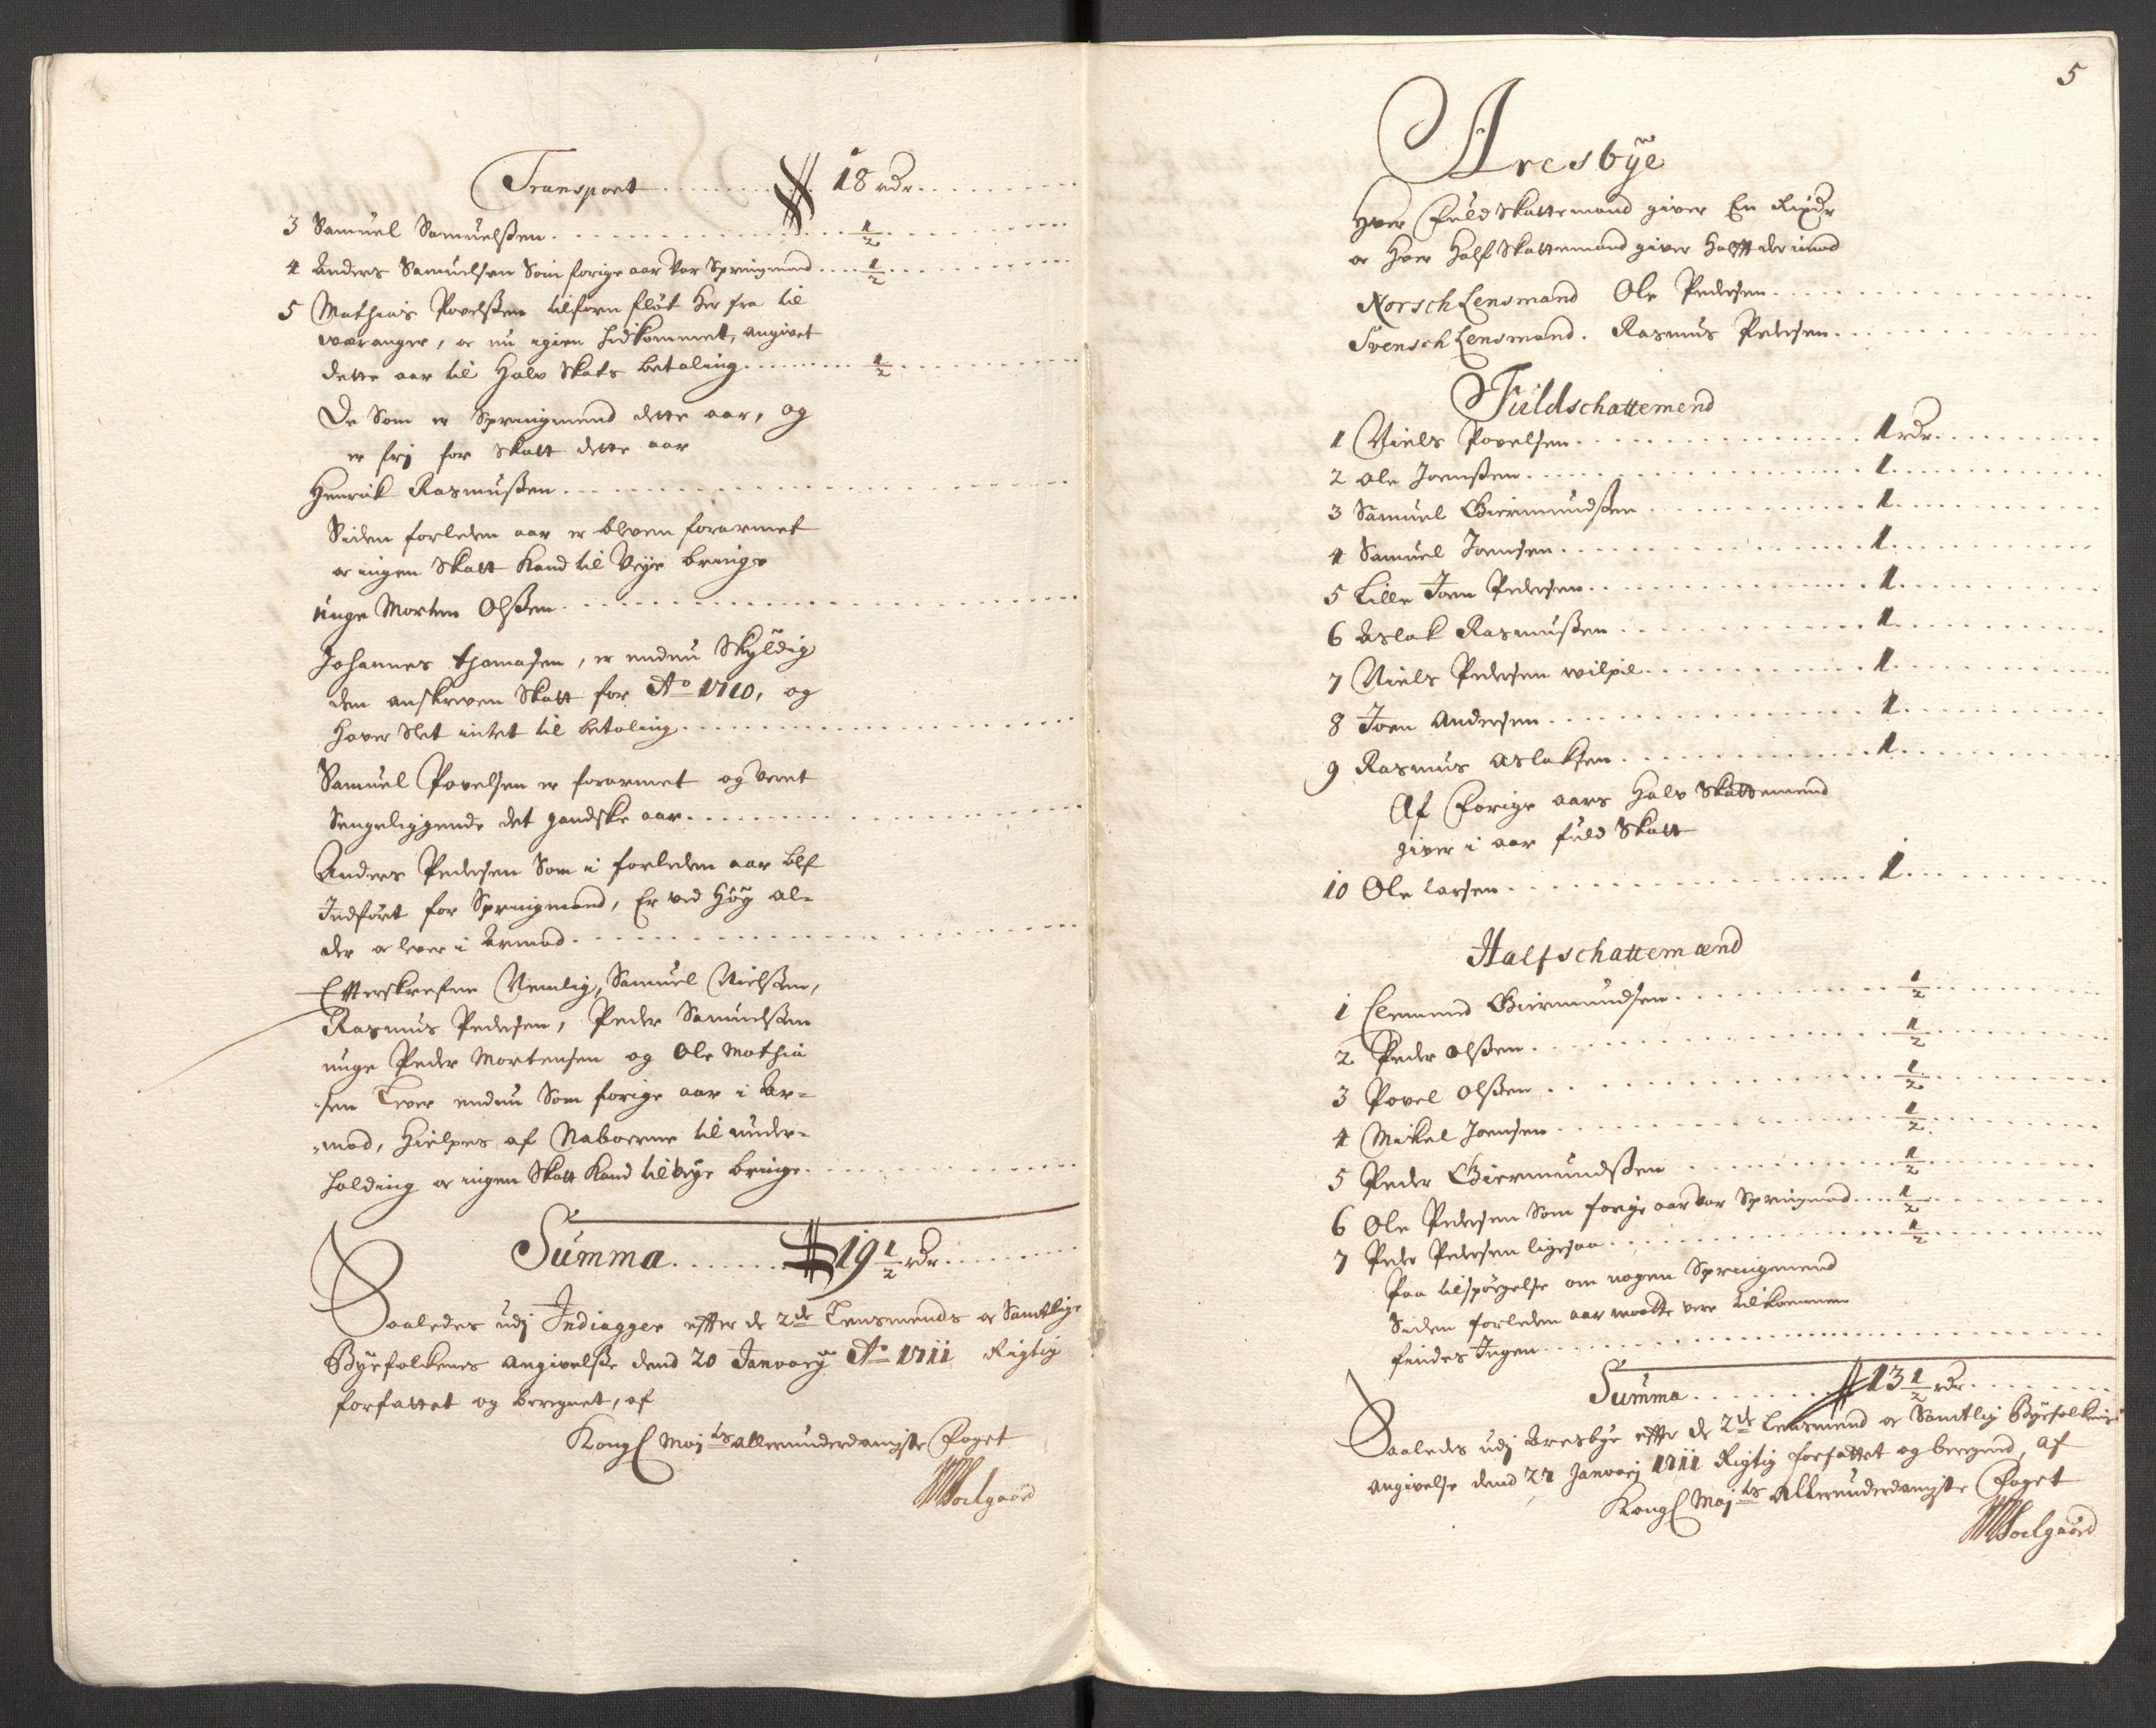 Transport ........ 18 rdr
3 Samuel Samuelssen ........ 1/2
4 Anders Samuelsen Som forige aar Var Springmand .... 1/2
5 Mathias Povelssen tilforn fløt her fra til
waranger, oc nu igien hidkommet, angivet
dette aar til Halv Skats betaling ........ 1/2
De Som er Springmend dette aar, og
er frj for Skatt dette aar
Henrik Rasmussen ........
Siden forleden aar er bleven forarmet
oc ingen Skatt Kand til Veye bringe
unge Morten Olssen ........
Johannes Thomasen, er endnu Skyldig
den anskreven Skatt for Ao 1710, og
haver Slet intet til betaling ........
Samuel Povelsen er forarmet og veret
Sengeliggende det gandske aar ........
Anders Pedersen Som i forleden aar blef
Indført for Springmand, Er ved Høy al-
der oc lever i Armod ........
Efterskrefne Nemlig, Samuel Nielssen,
Rasmus Pedersen, Peder Samuelssen
unge Peder Mortensen og Ole Mathia
-sen Lever endnu Som forige aar i Ar-
-mod, Hielpes af Naboerne til under-
holding oc ingen Skatt Kand til Veye bringe ........
Summa ........ 19 1/2 rdr ........
Saaledes udj Indiagger effter de 2de Lensmends oc Samtlige
Byefolkenes angivelsse dend 20 Januarij Ao 1711 Rigtig
forfattet og beregnet, af
Kongl Maj ts allerunderdanigste Foget
Soelgaard
5
Aresbÿe
Hver Fuld Skattemand giver En Rixdr
oc Hver Half Skattemand giver Halfft der imod
Norsch Lensmand Ole Pedersen ........
Svensch Lensmand. Rasmus Pedersen ........
Fuldschattemend
1 Niels Povelsen ........ 1 rdr ........
2 Ole Joenssen ........ 1 ........
3 Samuel Giermundssen ........ 1 ........
4 Samuel Joensen ........ 1 ........
5 Lille Joen Pedersen ........ 1 ........
6 Aslak Rasmussen ........ 1 ........
7 Niels Pedersen wilpil ........ 1 ........
8 Joen Andersen ........ 1 ........
9 Rasmus Aslaksen ........ 1 ........
Af Forige aars Halv Skattemend
giver i aar fuld Skatt
10 Ole Larsen ........ 1 ........
Halfschattemænd
1 Clemend Giermundsen ........ 1/2 ........
2 Peder Olssen ........ 1/2 ........
3 Povel Olssen ........ 1/2 ........
4 Mikel Joensen ........ 1/2 ........
5 Peder Giermundssen ........ 1/2 ........
6 Ole Pedersen Som forige aar Var Springmand .... 1/2 ........
7 Peder Pedersen ligesaa ........ 1/2 ........
Paa tilspørgelse om nogen Springmend
Siden forleden aar maatte vere tilkommen
findes Ingen ........
Summa ........ 13 1/2 rdr ........
Saaledes udj Aresbye effter de 2de Lensmend oc Samtlig Byefolkenes
angivelse dend 27 Januarj 1711 Rigtig forfattet og beregned, af
Kongl Maj ts Allerunderdanigste Foget
Soelgaard